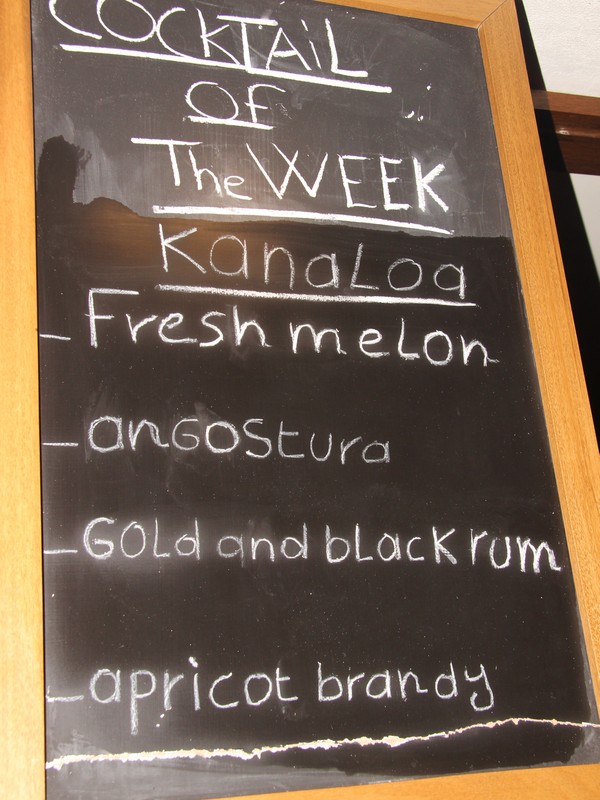 COCKTAiL
OF
The WEEK
KanaLoa
- Fresh meLon
- anGOStura
- GOLd and bLacK rum
- apricot brandy